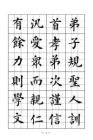 弟子規聖人訓
首孝弟次謹信
汎愛眾而親仁
有餘力則學文